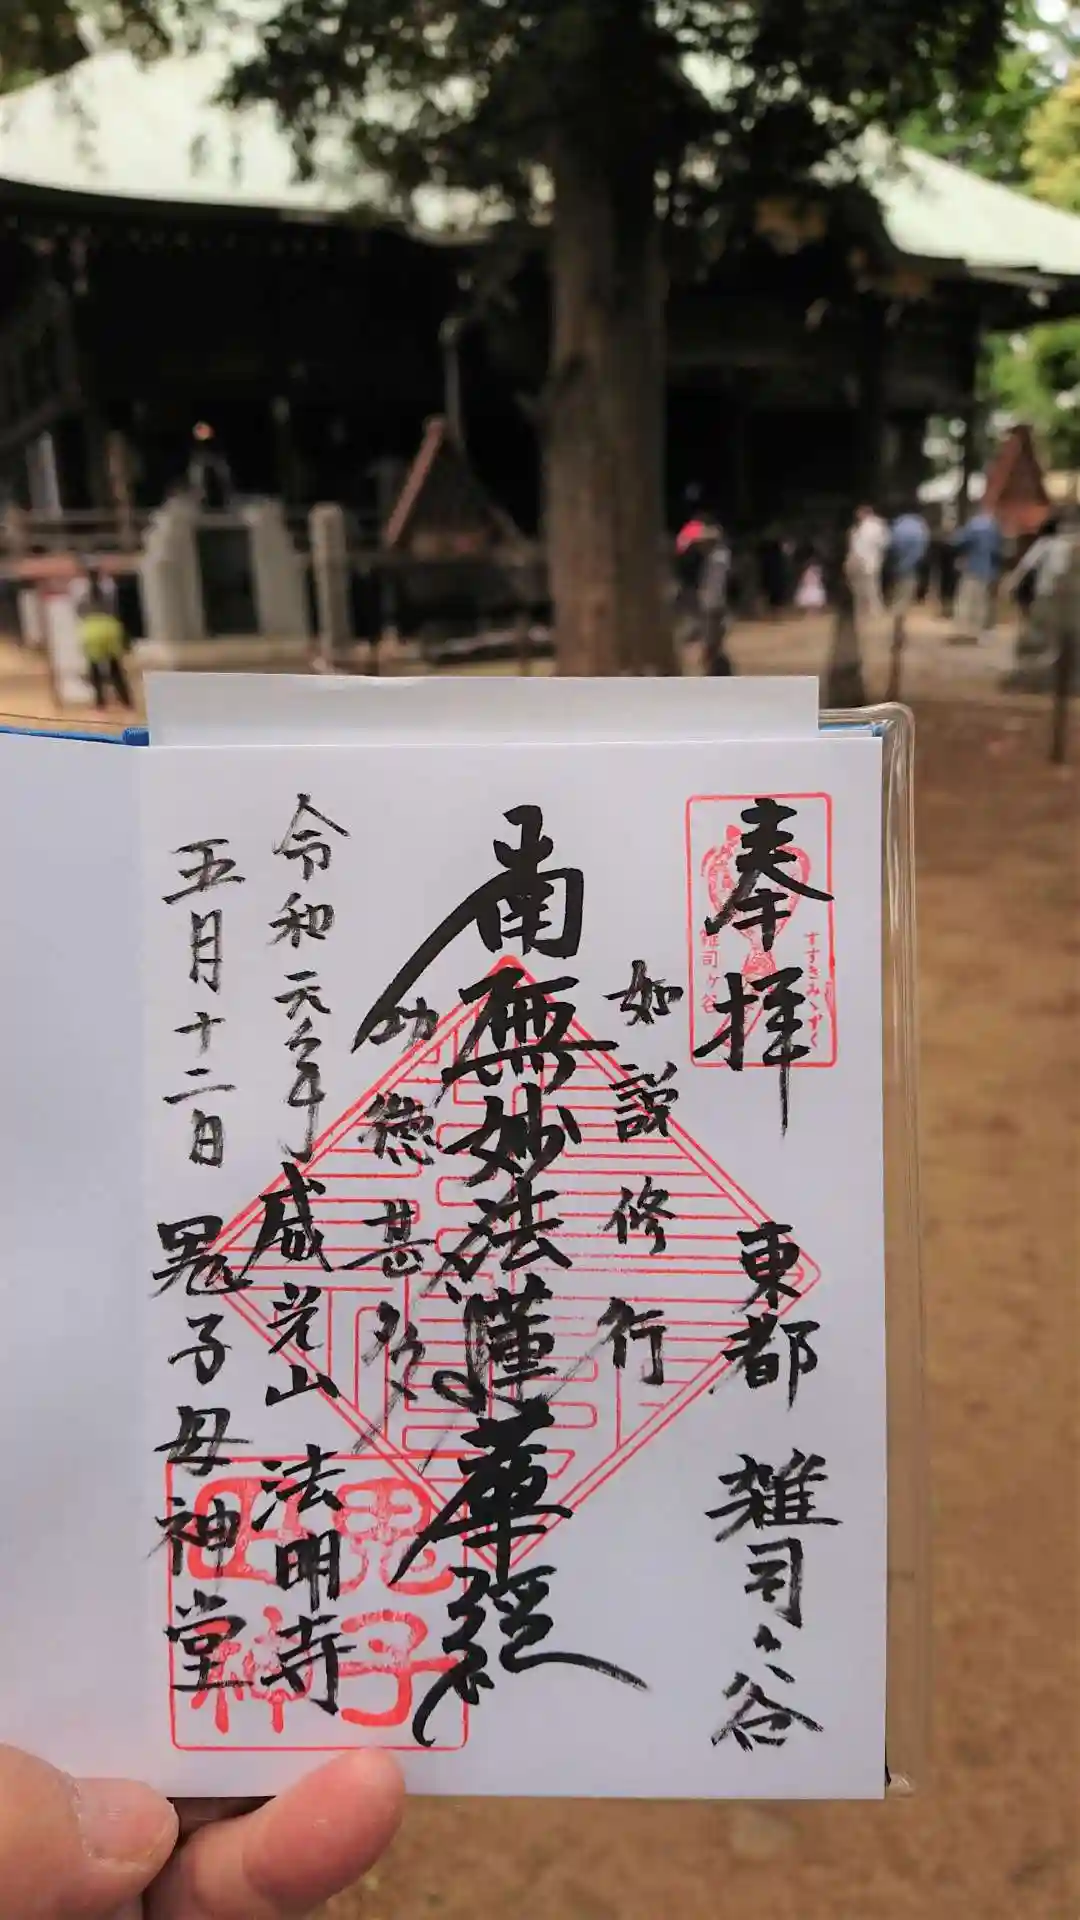 奉拝
すすきみゝずく
雑司ヶ谷
東都 雑司ヶ谷
如説修行
南無妙法蓮華経
功徳甚多
令和元年
威光山 法明寺
五月十二日
鬼子母神堂
鬼子
母神